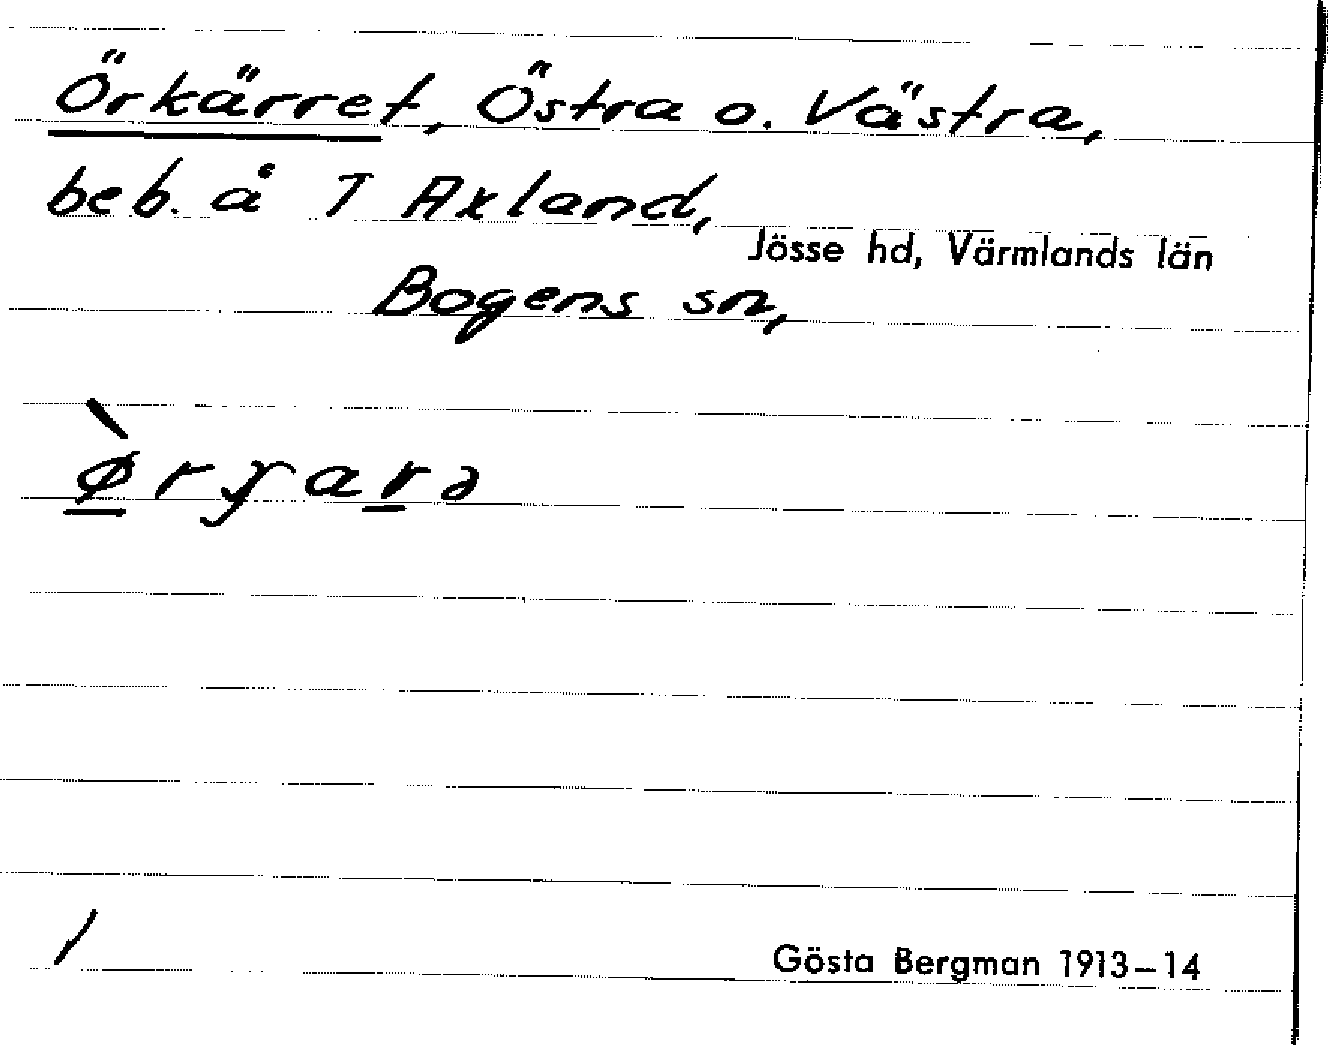 Örkärret, Östra o. Västra,
beb. å 7 Axland,
Jösse hd, Värmlands län
Bogens sn,
Gösta Bergman 1913–14